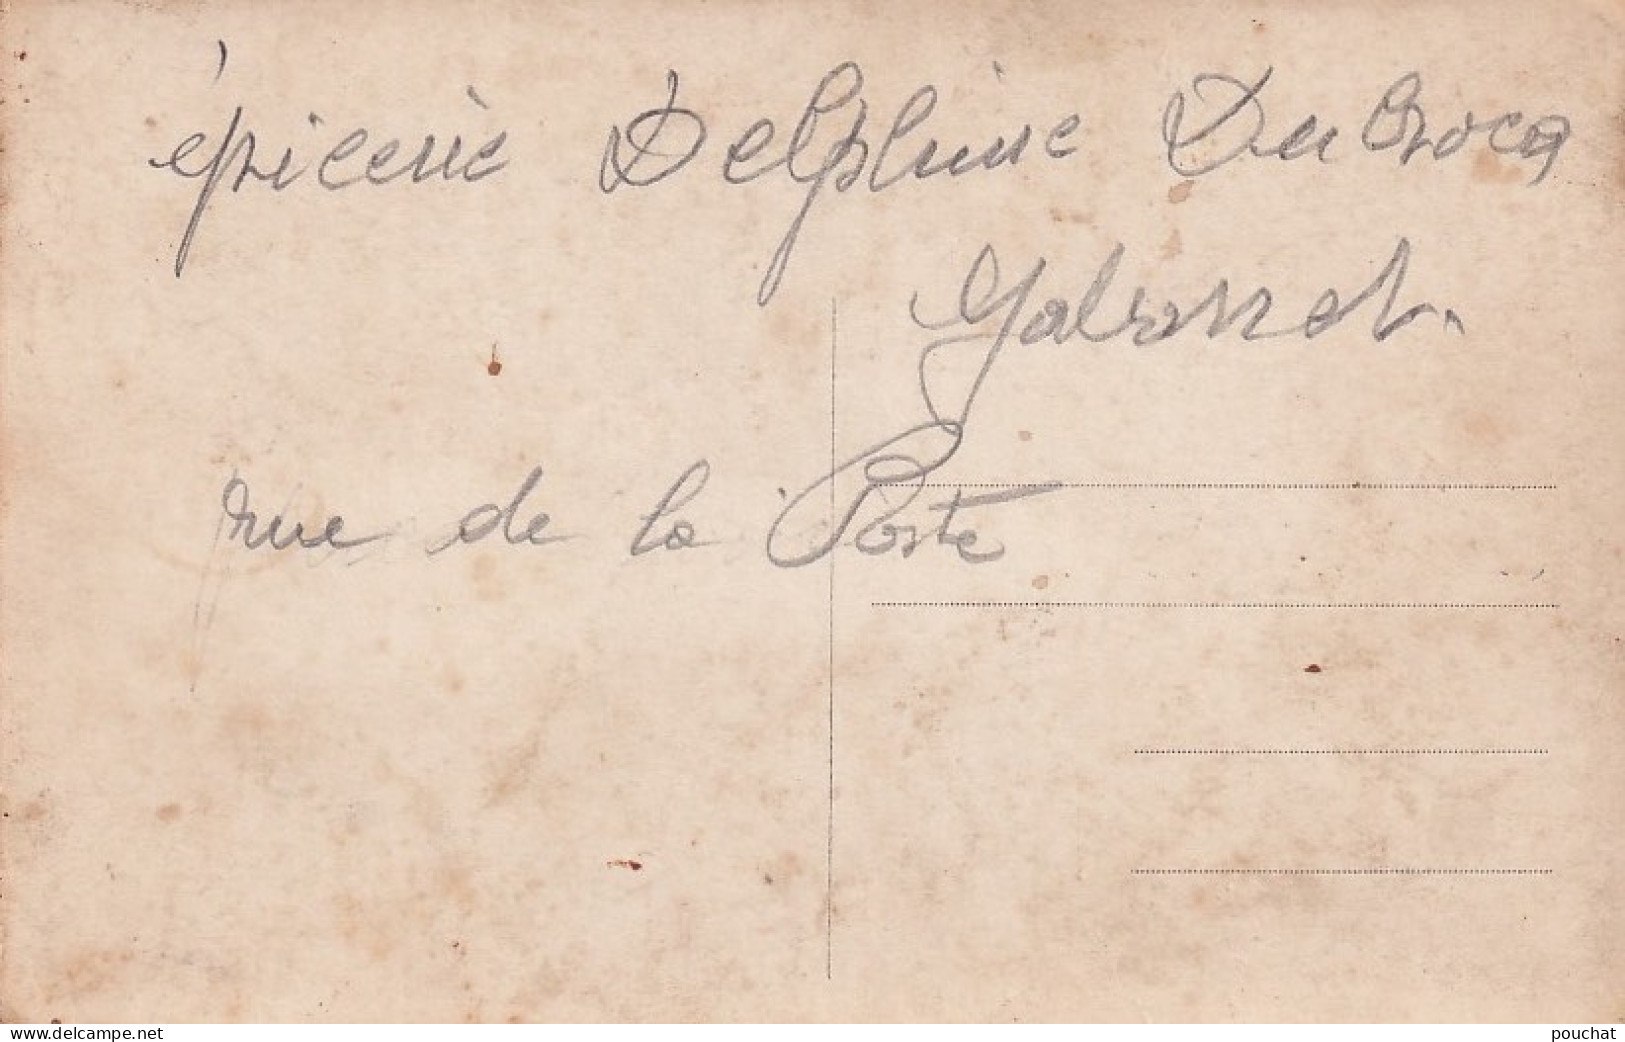 épicerie Delphine Ducrocq
Gabarret.
rue de la Poste
www.delcampe.net
pouchat